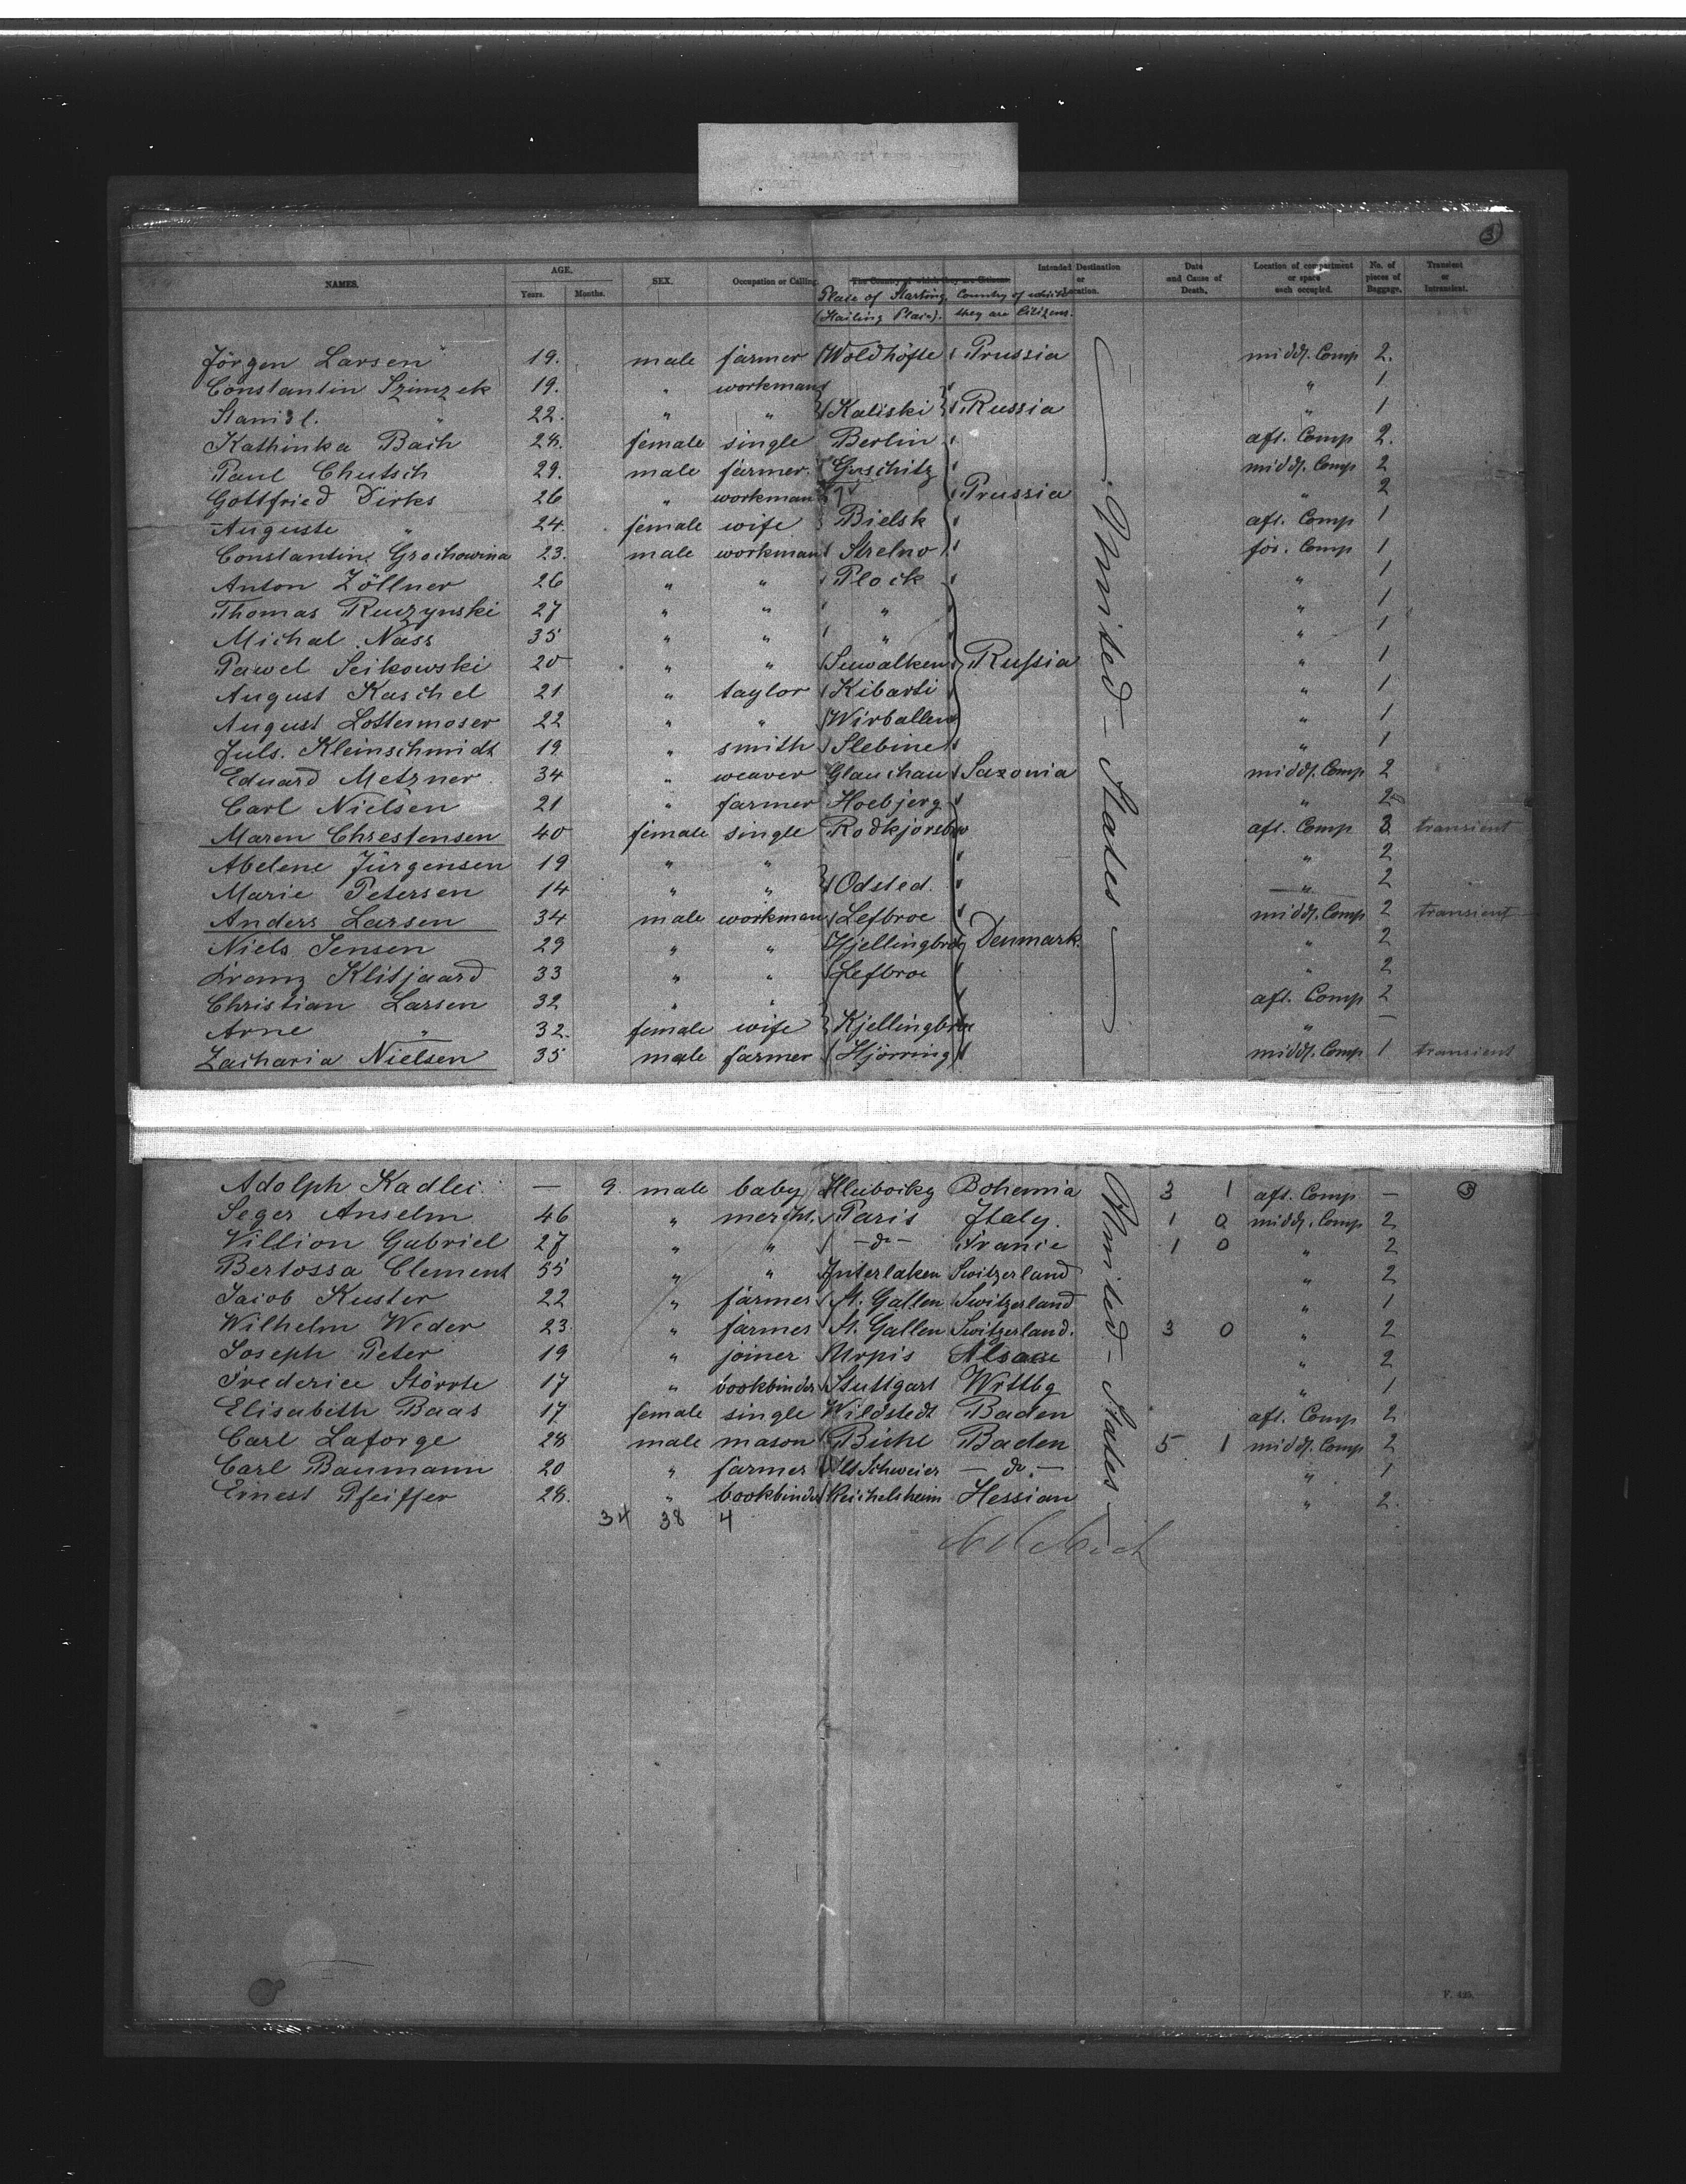 3
NAMES. AGE. Years. Months. SEX. Occupation or Calling. The Country of which they are Citizens. Intended Destination or Location. Date and Cause of Death. Location of compartment or space each occupied. No. of pieces of Baggage. Transient or Intransient.
Place of Starting Country of which
(Hailing Place). they are Citizens.
Jörgen Larsen 19. male farmer Woldhöfte Prussia middl. Comp 2.
Constantin Szimzek 19. " workman " 1
Stanisl. " 22. " " Kaliski Russia " 1
Kathinka Bach 28. female single Berlin aft. Comp 2.
Paul Chutsch 29. male farmer Goschitz middl. Comp 2
Gottfried Dirks 26 " workman Prussia " 2
Auguste " 24. female wife Bielsk aft. Comp 1
Constantin Grochowina 23. male workman Strelno for. Comp 1
Anton Zöllner 26 " " Plock " 1
Thomas Ruczynski 27 " " " " 1
Michal Nass 35 " " " " 1
Pawel Seikowski 20 " " Suwalken Russia " 1
August Kaschel 21 " taylor Kibarti " 1
August Lottermoser 22 " " Wirballen " 1
Juls. Kleinschmidt 19 " smith Slebine " 1
Eduard Metzner 34 " weaver Glauchau Saxonia middl. Comp 2
Carl Nielsen 21 " farmer Hoebjerg " 2
Maren Chrestensen 40 female single Rodkjorsbro aft. Comp 3 transient
Abelene Jürgensen 19 " " " 2
Marie Petersen 14 " " Odsted. " 2
Anders Larsen 34 male workman Lefbroe middl. Comp 2 transient
Niels Jensen 29 " " Hjellingbro Denmark. " 2
Franz Klitjaard 33 " " Lefbroe " 2
Christian Larsen 32 " " aft. Comp 2
Arne " 32. female wife Kjellingbroe " —
Zacharia Nielsen 35 male farmer Hjörring middl. Comp 1 transient
United States
Adolph Kadlec — 9. male baby Hluboiky Bohemia 3 1 aft. Comp — 3
Seger Anselm 46 " mercht. Paris Italy. 1 0 middl. Comp 2
Villion Gabriel 27 " " —do— France 1 0 " 2
Bertossa Clement 55 " " Interlaken Switzerland " 2
Jacob Kuster 22 " farmer St. Gallen Switzerland " 1
Wilhelm Weder 23. " farmer St. Gallen Switzerland. 3 0 " 2
Joseph Peter 19 " joiner Urpis Alsace " 2
Frederice Störrle 17 " bookbinder Stuttgart Wrttbg " 1
Elisabeth Baas 17 female single Wildstedt Baden aft. Comp 2
Carl Laforge 28 male mason Bichl Baden 5 1 middl. Comp 2
Carl Baumann 20 " farmer Alt Schweier —do.— " 1
Ernest Pfeiffer 28. " bookbinder Reichelsheim Hessian " 2.
United States
34 38 4
F. 425.